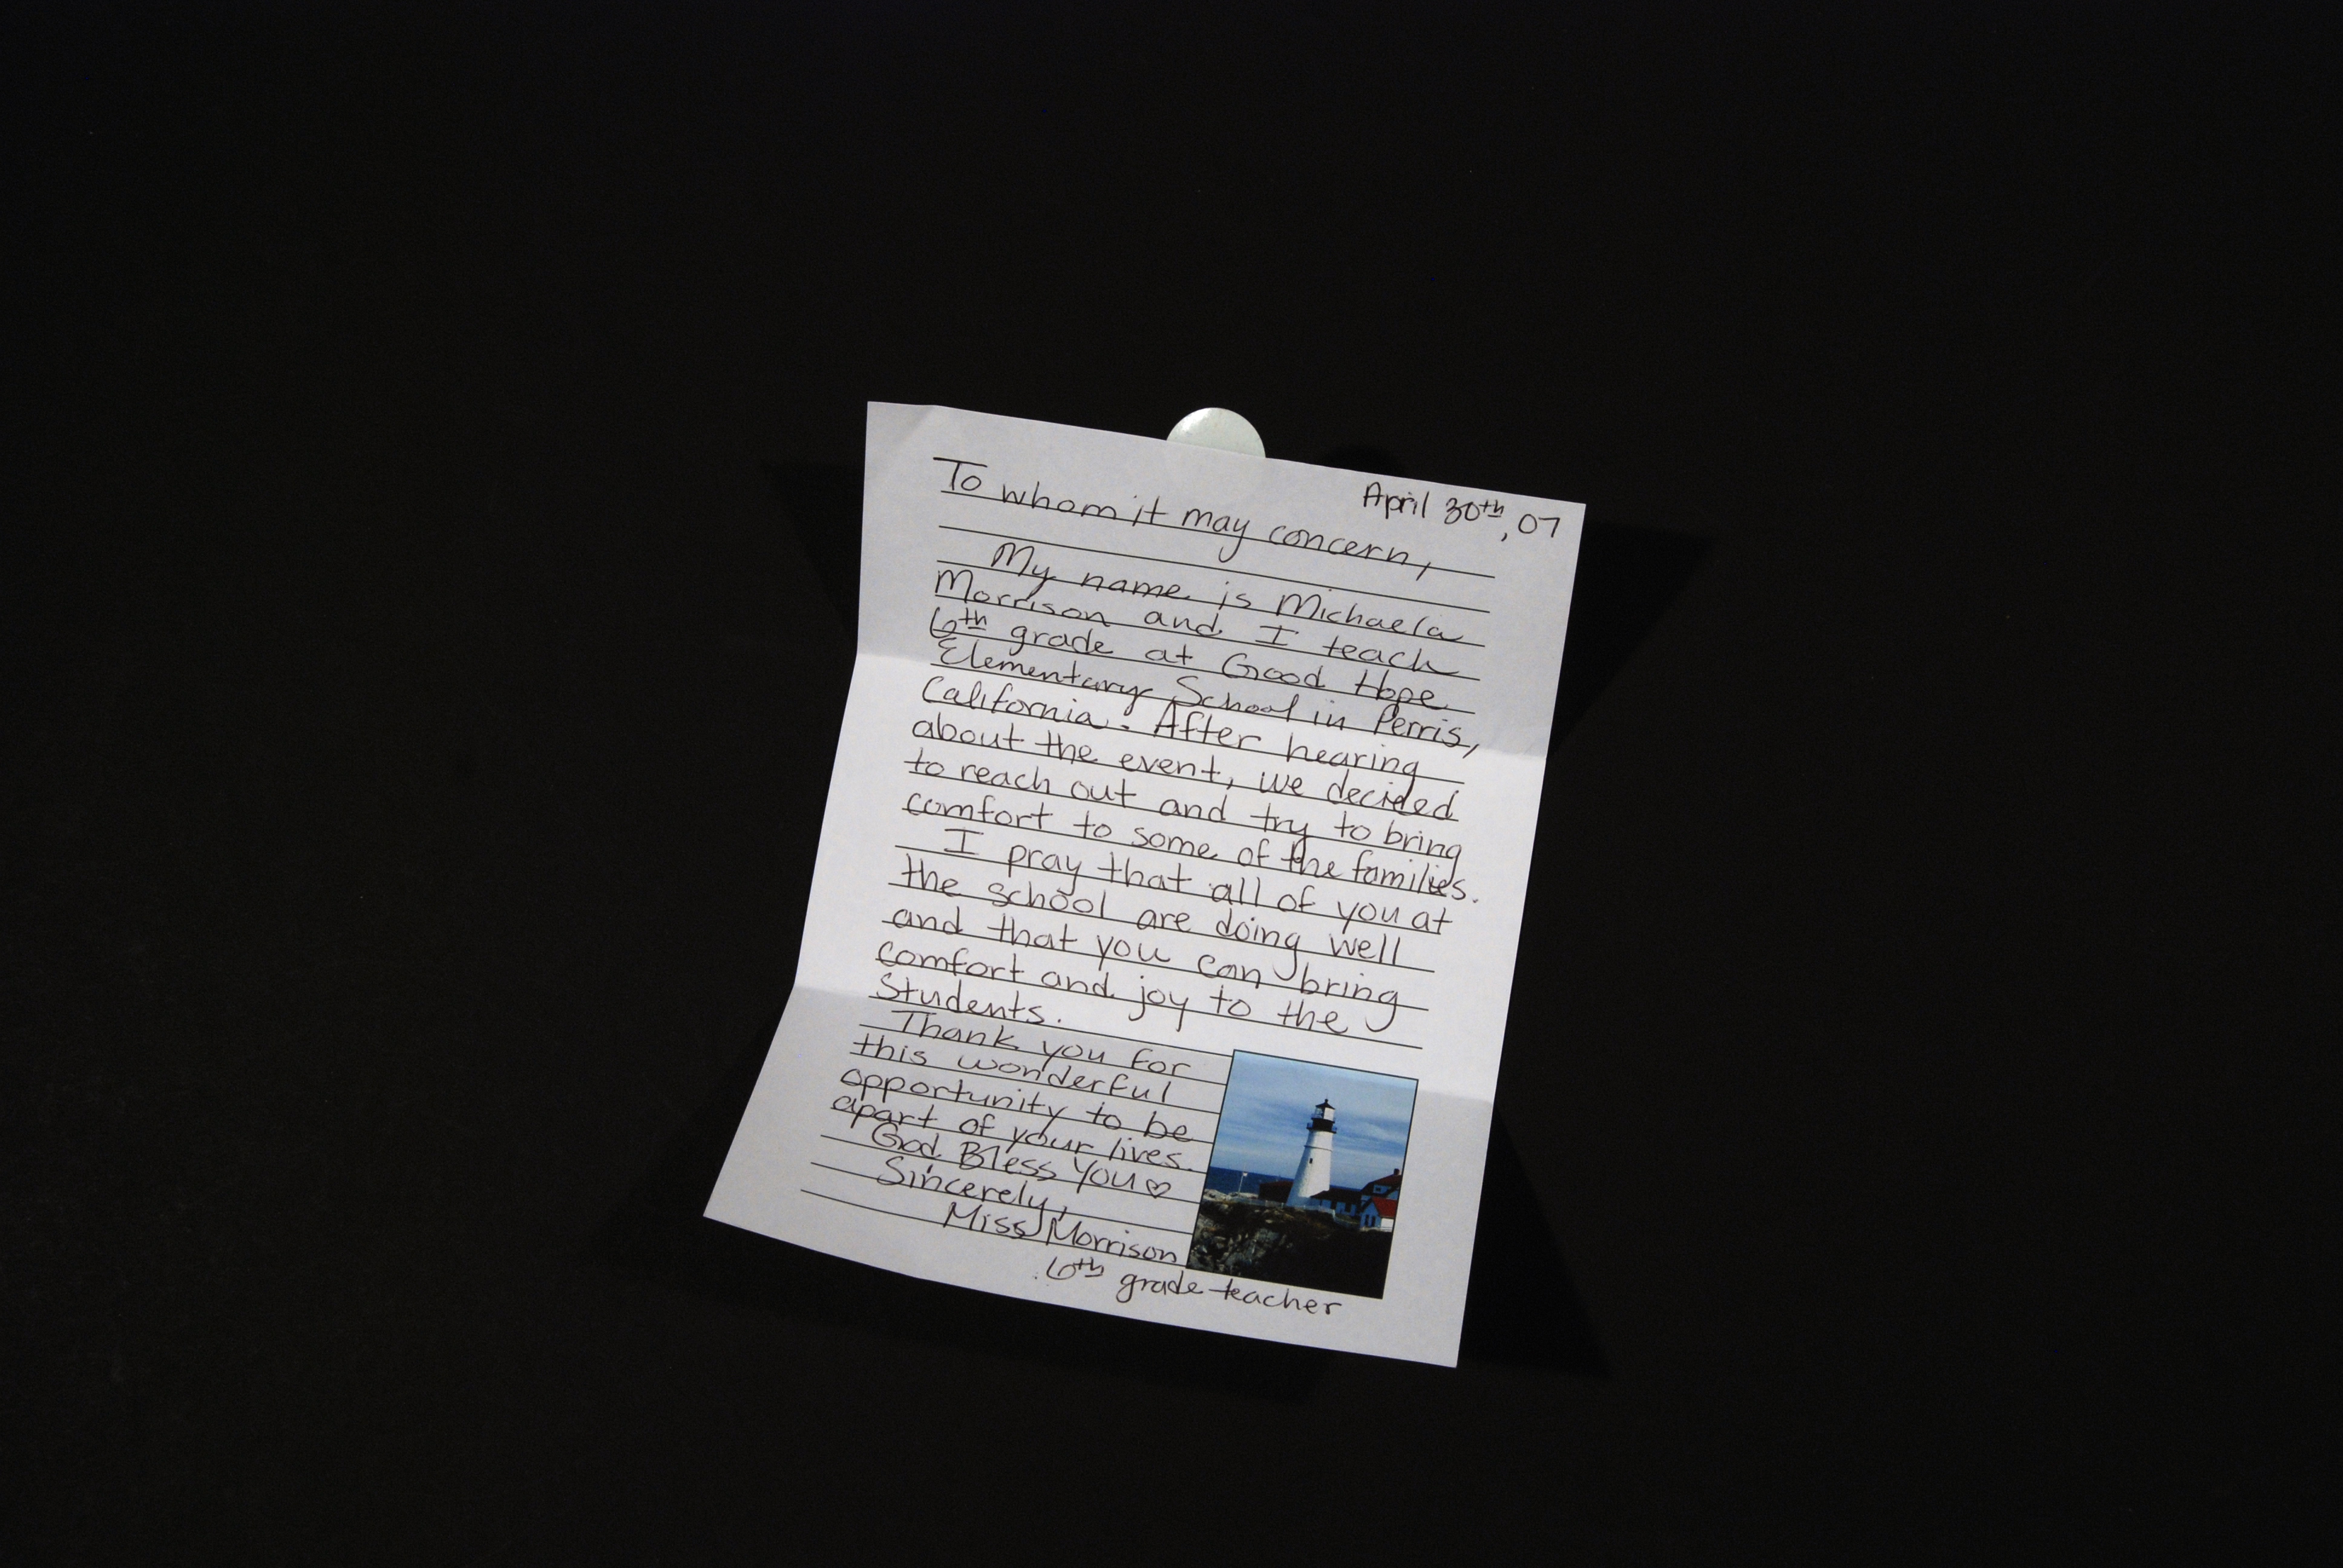 April 30th, 07
To whom it may concern,
My name is Michaela
Morrison and I teach
6th grade at Good Hope
Elementary School in Perris,
California. After hearing
about the event, we decided
to reach out and try to bring
comfort to some of the families.
I pray that all of you at
the school are doing well
and that you can bring
comfort and joy to the
Students.
Thank you for
this wonderful
opportunity to be
apart of your lives.
God Bless You ♡
Sincerely,
Miss Morrison
6th grade teacher